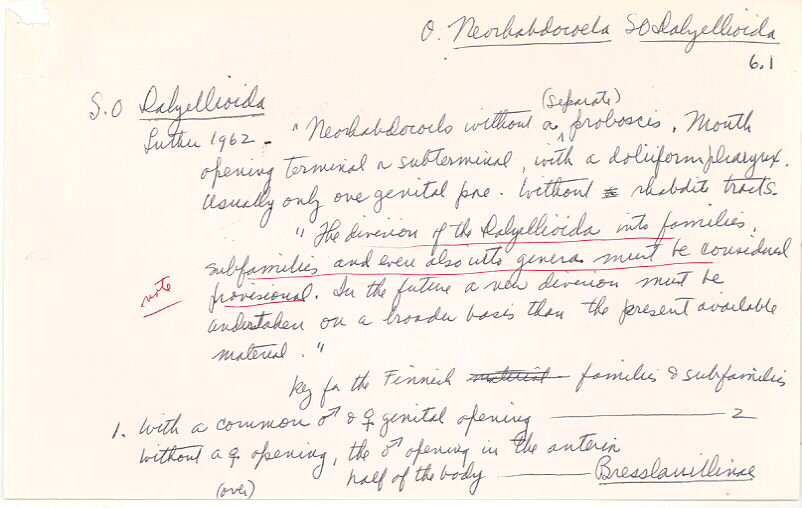 O. Neorhabdocoela SO Dalyellioida
6.1
S.O Dalyellioida
(separate)
Luther 1962 - "Neorhabdocoels without a ^ proboscis. Mouth
opening terminal or subterminal, with a doliiform pharynx.
Usually only one genital pore. Without rhabdite tracts.
"The division of the Dalyellioida into families,
subfamilies and even also into genera must be considered
note
provisional. In the future a new division must be
undertaken on a broader basis than the present available
material."
Key for the Finnish material families & subfamilies
1. With a common ♂ & ♀ genital opening ———— 2
Without a ♀ opening, the ♂ opening in the anterior
half of the body ———— Bresslauillinae
(over)